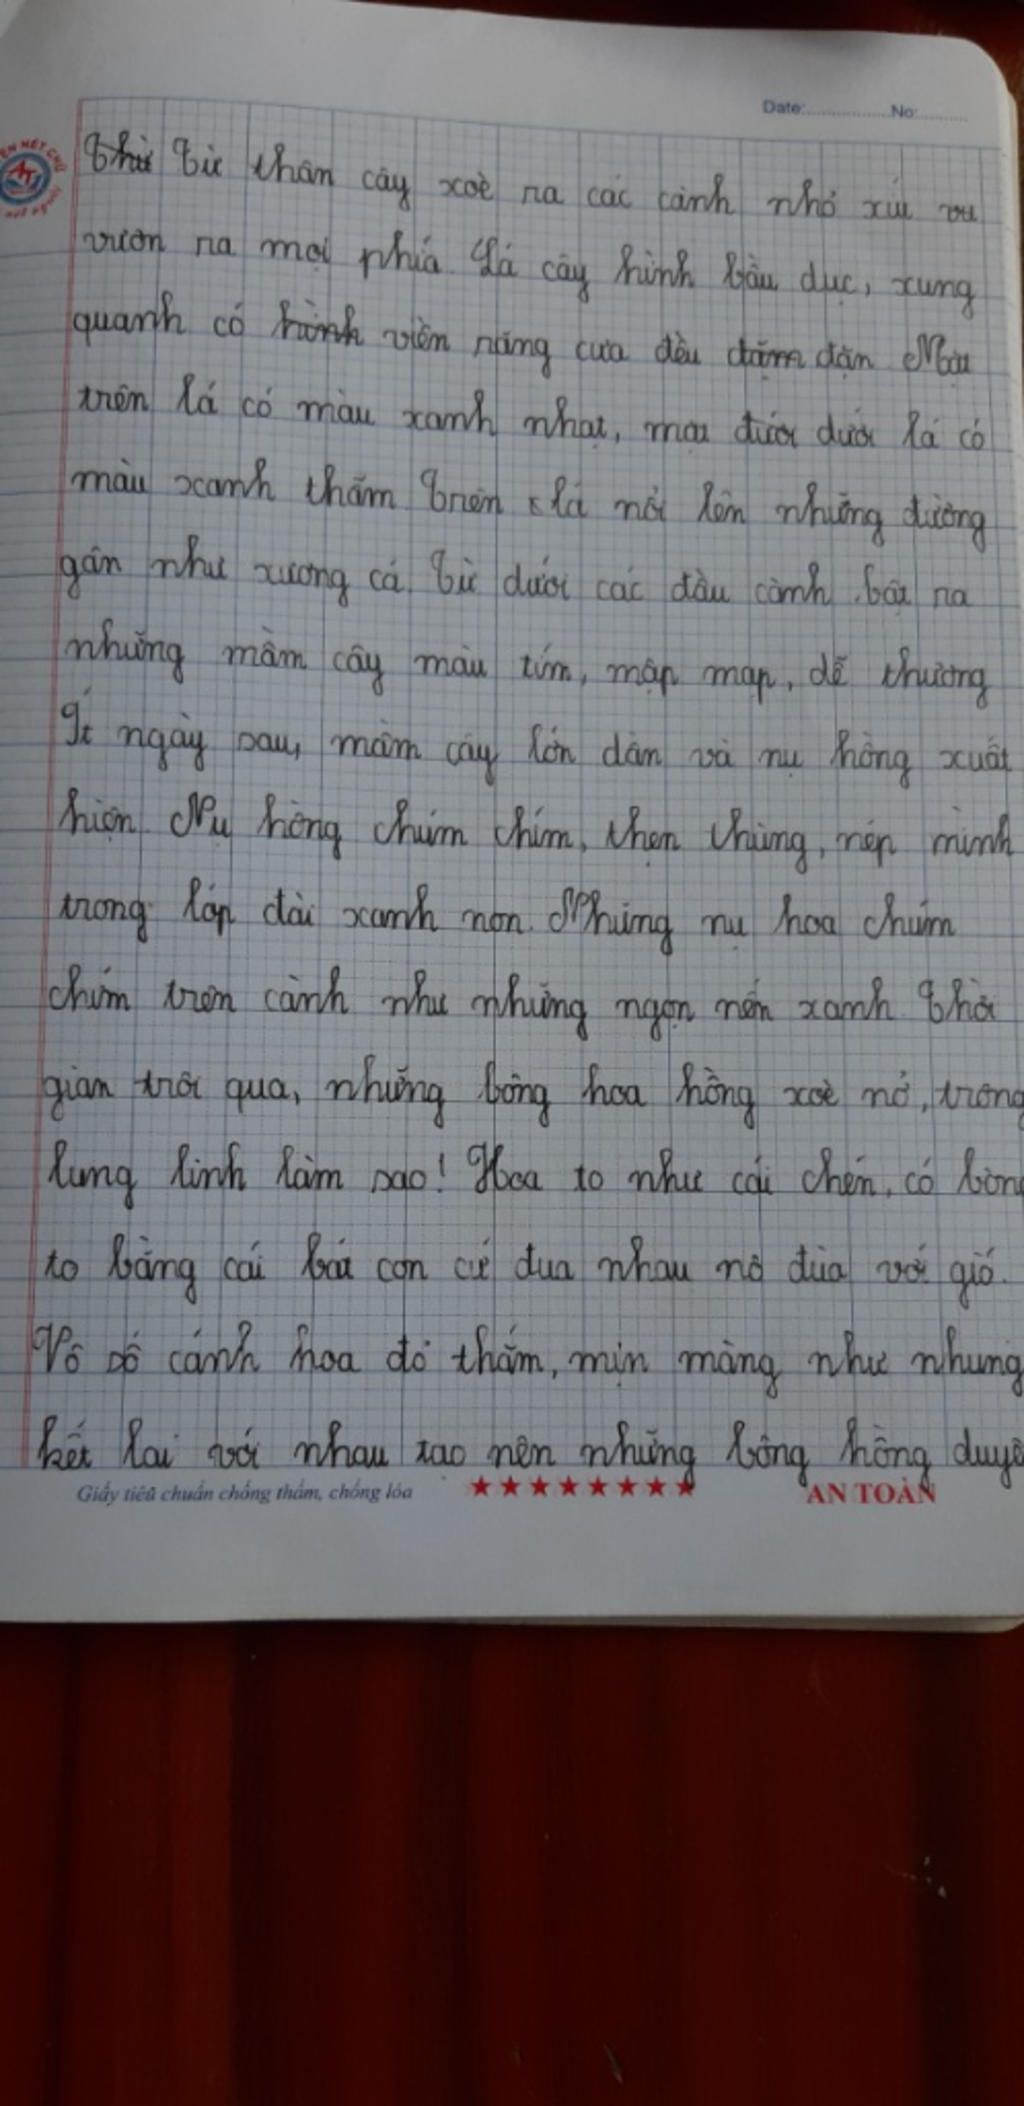 Date:..................No:..........
Từ thân cây xoè ra các cành nhỏ xíu
vươn ra mọi phía Lá cây hình bầu dục, xung
quanh có viền răng cưa đều đặn Mặt
trên lá có màu xanh nhạt, mặt dưới lá có
màu xanh thẫm Trên lá nổi lên những đường
gân như xương cá. Từ dưới các đầu cành bật ra
những mầm cây màu tím, mập mạp, dễ thương
Ít ngày sau, mầm cây lớn dần và nụ hồng xuất
hiện. Nụ hồng chúm chím, thẹn thùng, nép mình
trong lớp đài xanh non. Những nụ hoa chúm
chím trên cành như những ngọn nến xanh Thời
gian trôi qua, những bông hoa hồng xoè nở, trông
lung linh làm sao! Hoa to như cái chén, có bông
to bằng cái bát con cứ đua nhau nô đùa với gió.
Vô số cánh hoa đỏ thắm, mịn màng như nhung
kết lại với nhau tạo nên những bông hồng duyê
Giấy tiêu chuẩn chống thấm, chống lóa ★★★★★★★★ AN TOÀN